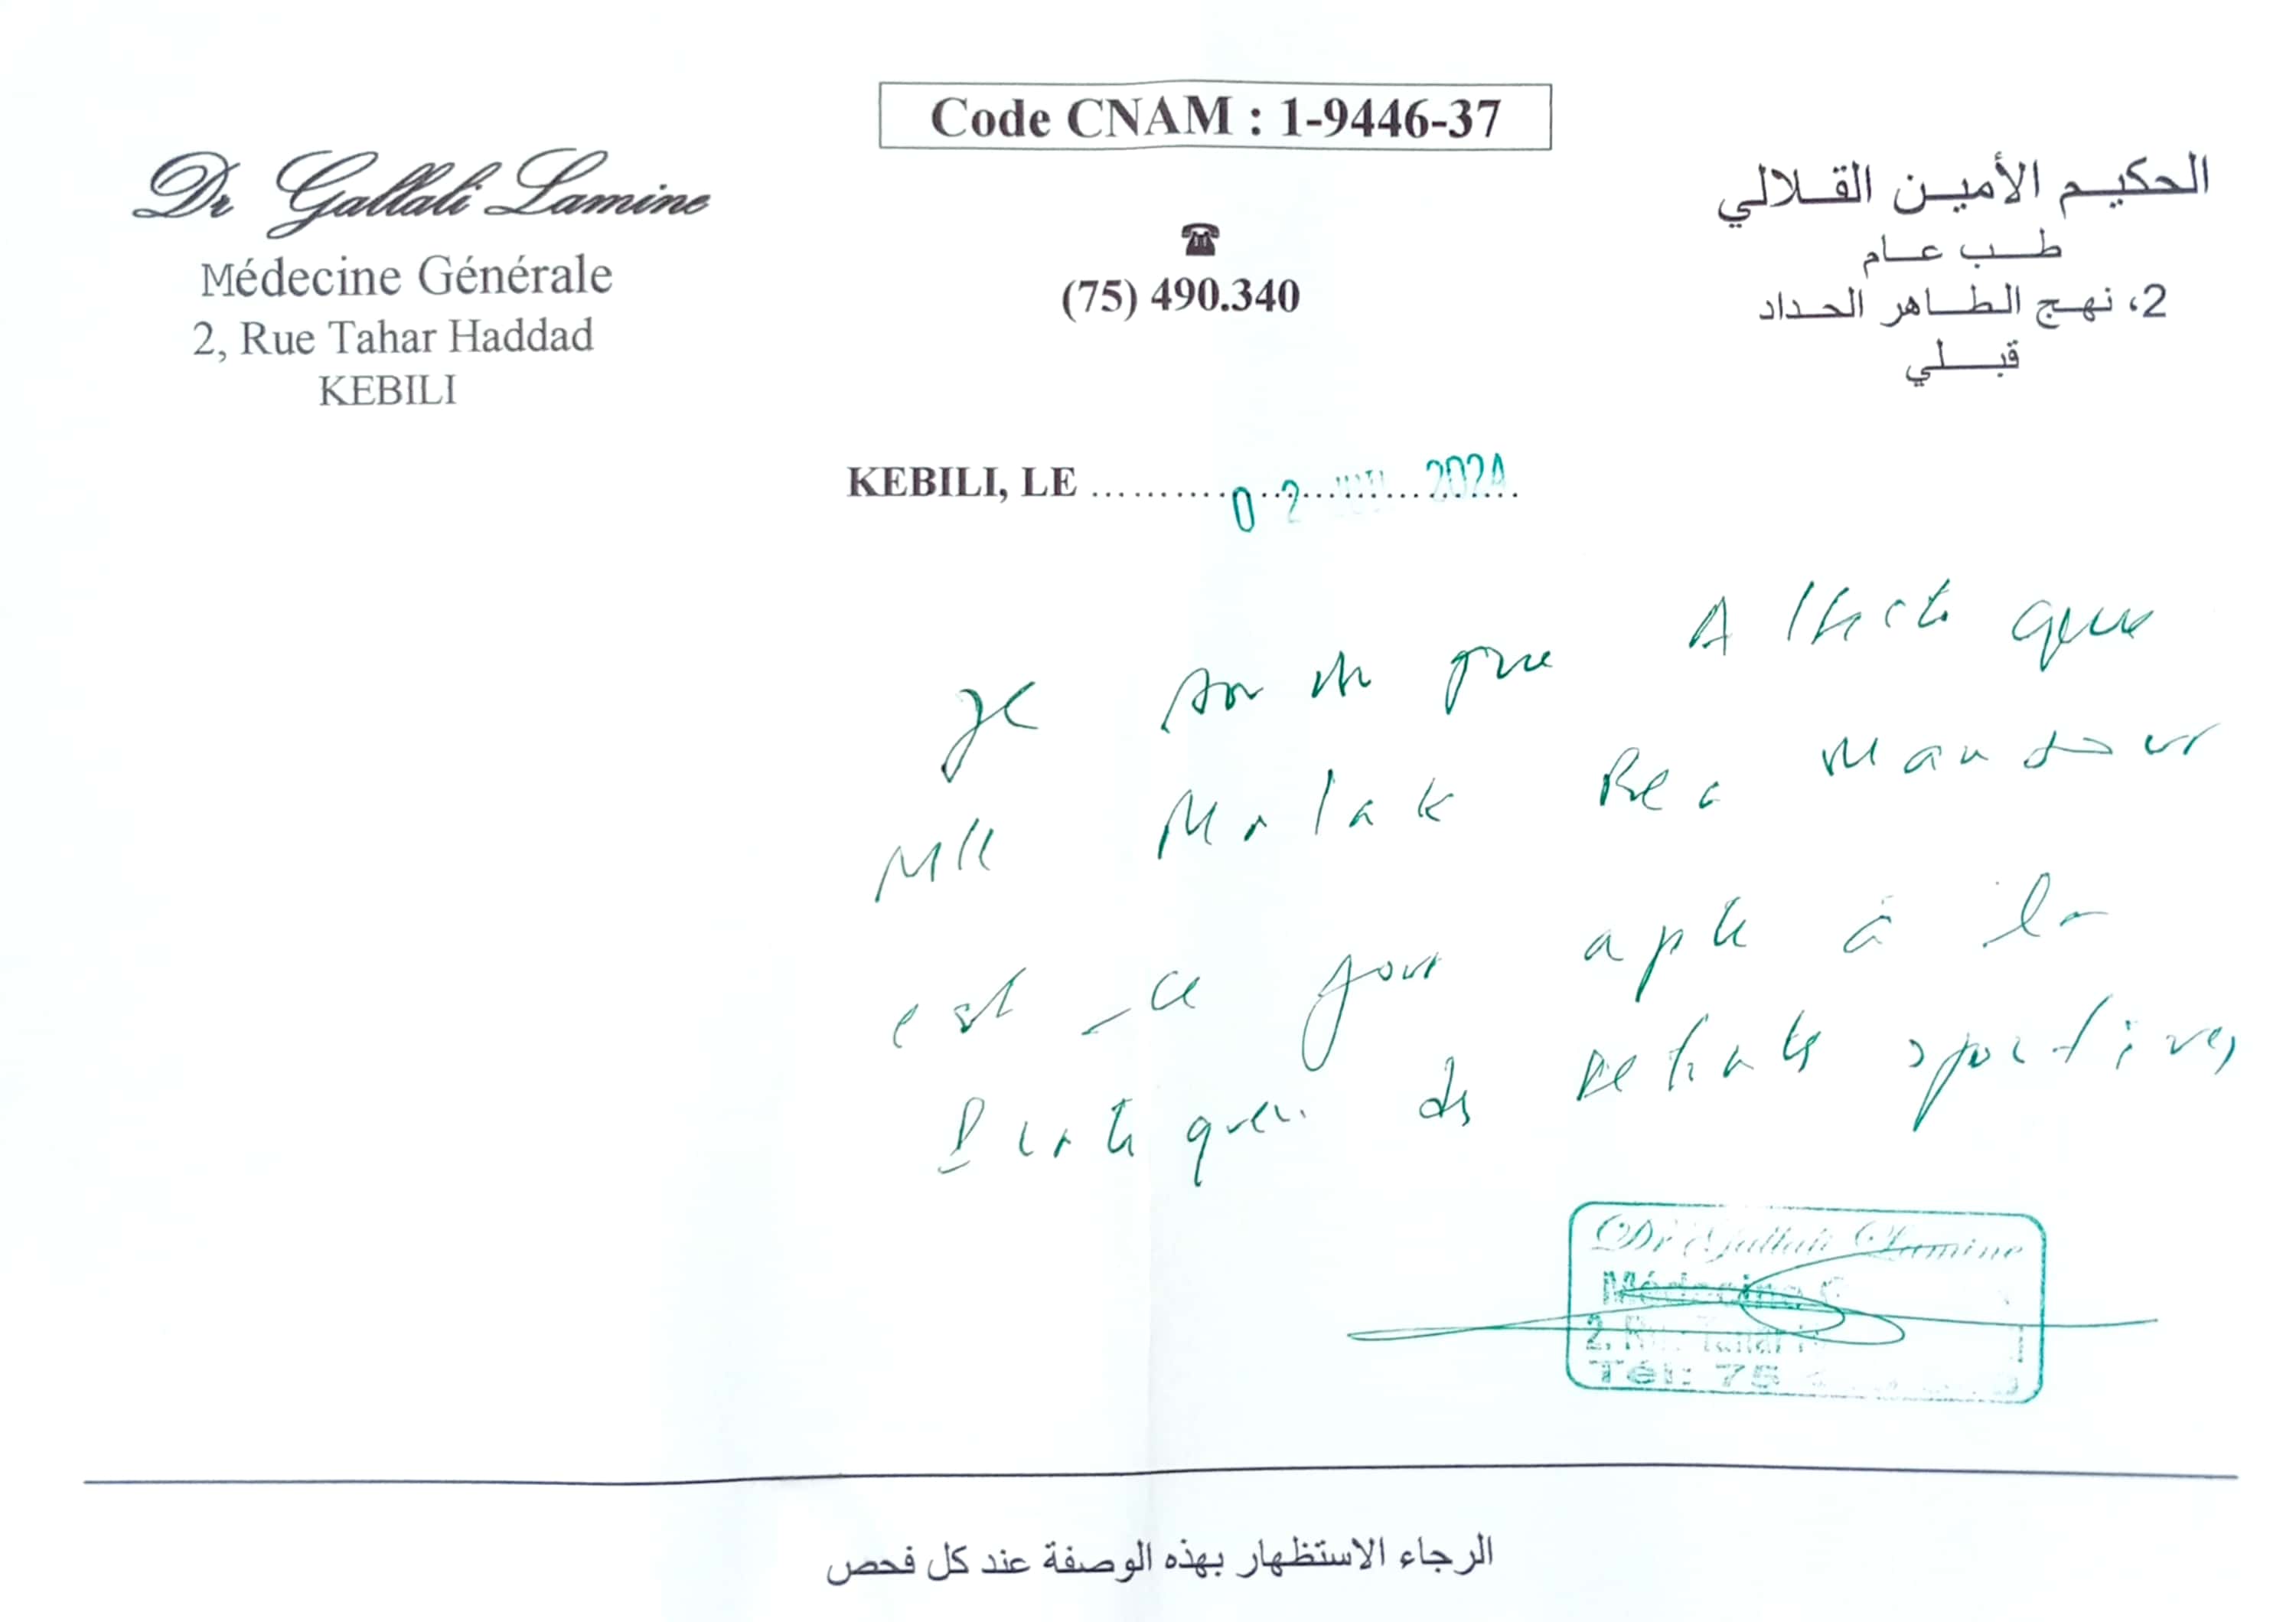 Code CNAM : 1-9446-37
Dr Gallali Lamine
Médecine Générale
2, Rue Tahar Haddad
KEBILI
☎
(75) 490.340
الحكيم الأمين القلالي
طب عام
2، نهج الطاهر الحداد
قبلي
KEBILI, LE 02 2024
Je que
Mlle Malak Ben Mansour
est ce jour apte à la
des sportives
Dr Gallali Lamine
Tél: 75
الرجاء الاستظهار بهذه الوصفة عند كل فحص